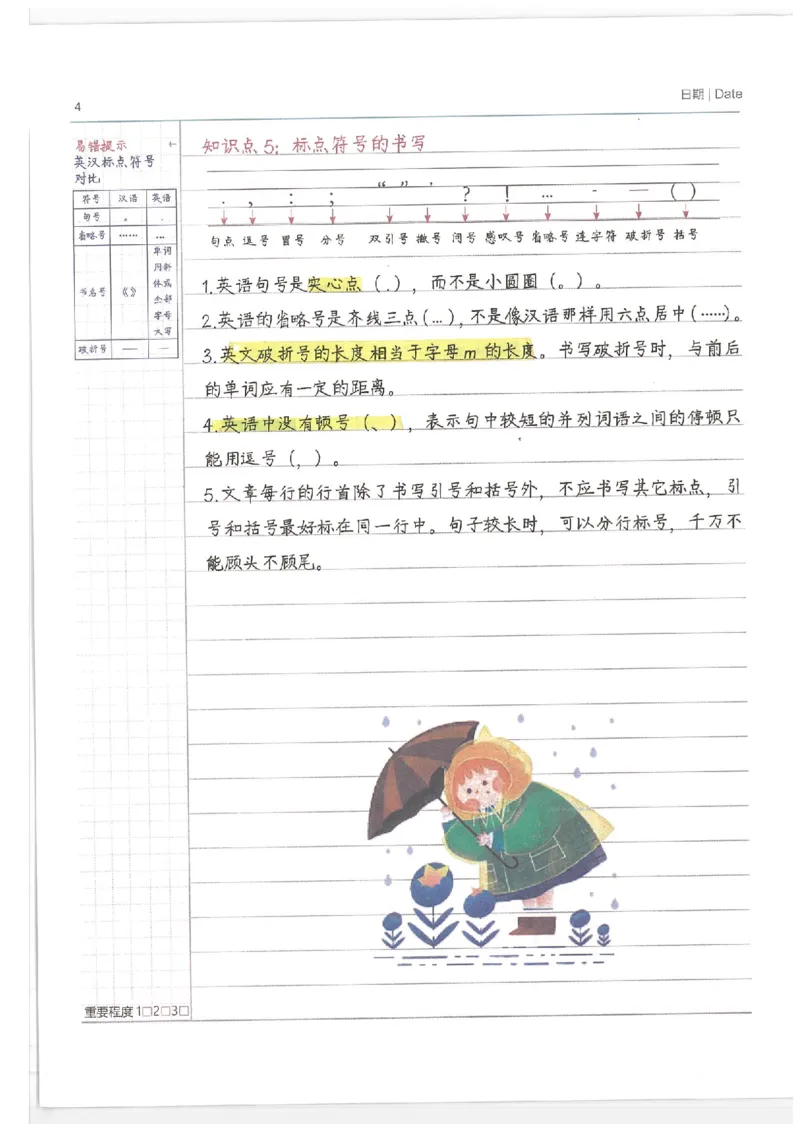 4
日期 | Date
易错提示
英汉标点符号
对比
符号 汉语 英语
句号 。 .
省略号 …… …
书名号 《》 单词
用斜
体或
全部
字母
大写
破折号 —— —
知识点5：标点符号的书写
. , : ; “ ” ' ? ! … - — ( )
句点 逗号 冒号 分号 双引号 撇号 问号 感叹号 省略号 连字符 破折号 括号
1.英语句号是实心点（.），而不是小圆圈（。）。
2.英语的省略号是齐线三点(…),不是像汉语那样用六点居中(……)。
3.英文破折号的长度相当于字母m的长度。书写破折号时，与前后
的单词应有一定的距离。
4.英语中没有顿号（、），表示句中较短的并列词语之间的停顿只
能用逗号（，）。
5.文章每行的行首除了书写引号和括号外，不应书写其它标点，引
号和括号最好标在同一行中。句子较长时，可以分行标号，千万不
能顾头不顾尾。
重要程度1□2□3□